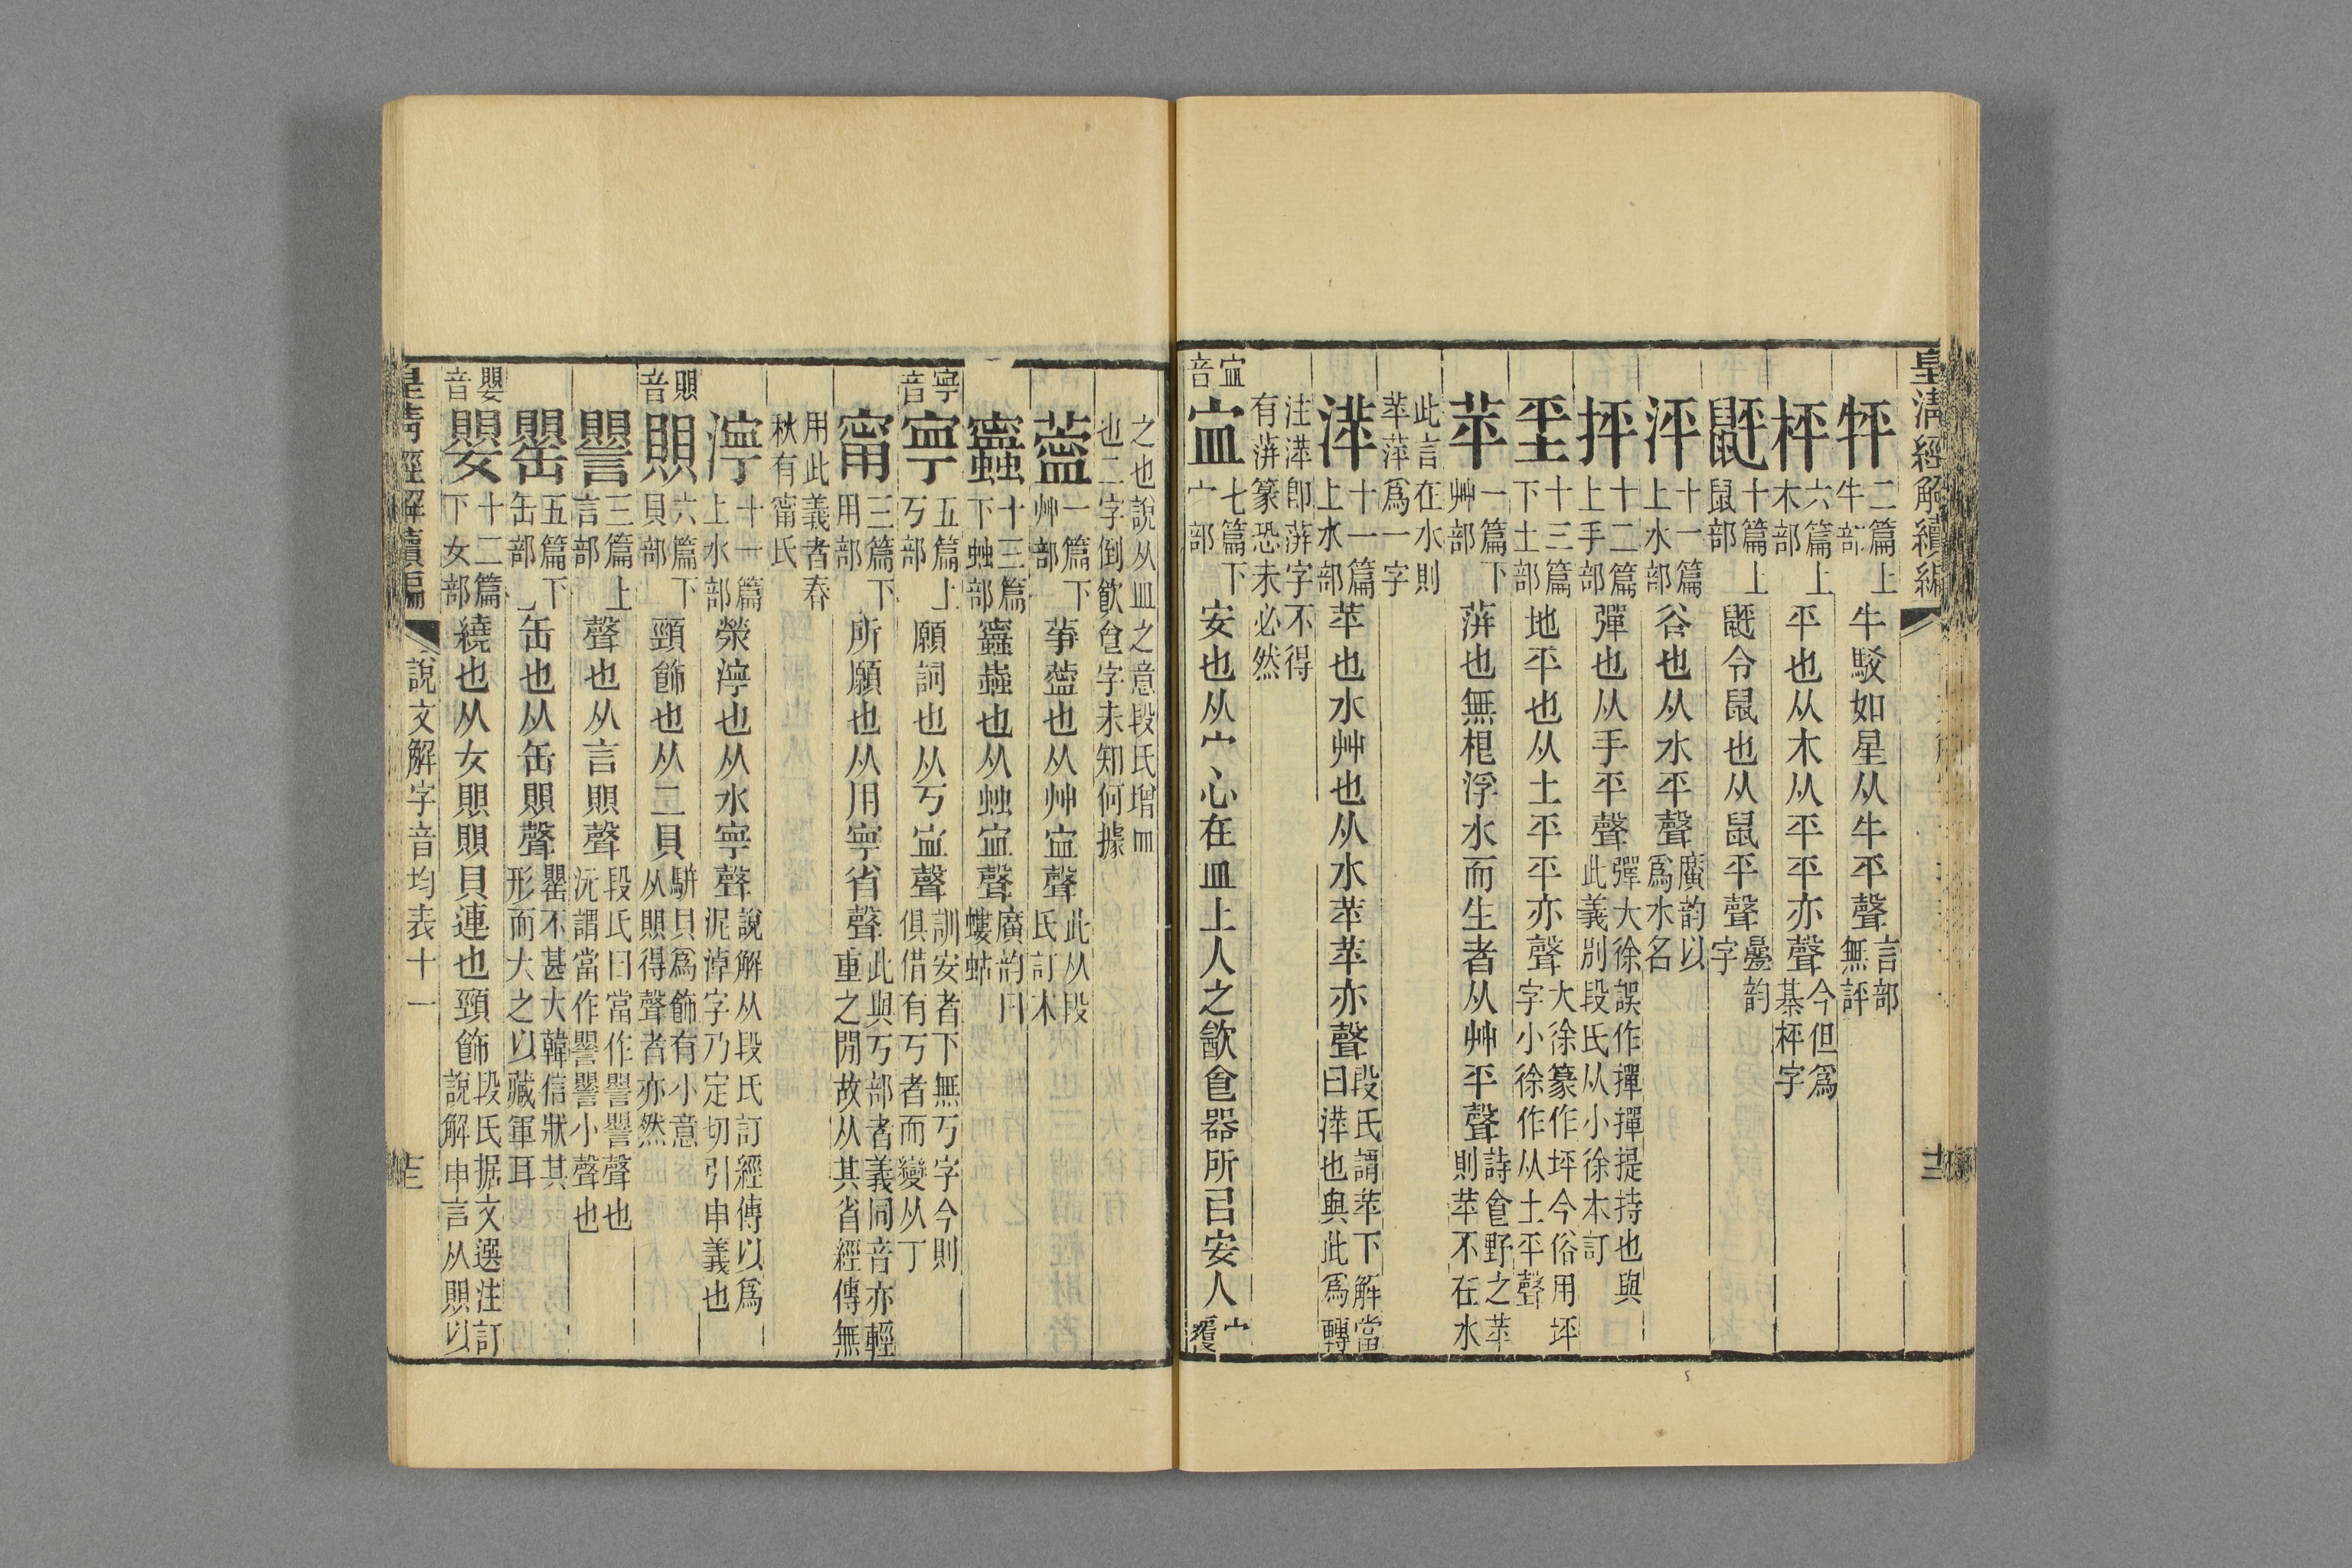 皇清經解續編
牪 二篇上牛部 牛駁如星从牛平聲 言部無評
枰 六篇上木部 平也从木从平平亦聲 今但爲棊枰字
鼮 十篇上鼠部 鼮令鼠也从鼠平聲 㬪韵字
泙 十一篇上水部 谷也从水平聲 廣韵以爲水名
抨 十二篇上手部 彈也从手平聲 彈大徐誤作撣撣提持也與此義別段氏从小徐本訂
坪 十三篇下土部 地平也从土平平亦聲 大徐篆作坪今俗用坪字小徐作从土平聲
苹 一篇下艸部 蓱也無根浮水而生者从艸平聲 詩㑒野之苹則苹不在水
此言在水則苹萍爲一字
蓱 十一篇上水部 苹也水艸也从水苹苹亦聲 段氏謂苹下解當曰蓱也與此爲轉
注蓱卽蓱字不得有蓱篆恐未必然
寍音
寍 七篇下宀部 安也从宀心在皿上人之㱃㑒器所㠯安人 宀覆
之也說从皿之意段氏增皿也二字倒㱃㑒字未知何據
薴 一篇下艸部 䓖薴也从艸寍聲 此从段氏訂本
蠠 十三篇下䖵部 蠠蟲也从䖵寍聲 廣韵曰螻蛄
寧音
寧 五篇上丂部 願詞也从丂寍聲 訓安者下無丂字今則俱借有丂者而變从丁
甯 三篇下用部 所願也从用寧省聲 此與丂部者義同音亦輕重之閒故从其省經傳無
用此義者春秋有甯氏
濘 十一篇上水部 滎濘也从水寧聲 說解从段氏訂經傳以爲泥淖字乃定切引申義也
賏音
賏 六篇下貝部 頸飾也从二貝 駢貝爲飾有小意从賏得聲者亦然
譻 三篇上言部 聲也从言賏聲 段氏曰當作譻譻聲也沅謂當作譻譻小聲也
罌 五篇下缶部 缶也从缶賏聲 罌不甚大韓信狀其形而大之以藏軍耳
嬰音
嬰 十二篇下女部 繞也从女賏賏貝連也頸飾 段氏据文選注訂說解申言从賏以
皇清經解續編 說文解字音均表十一